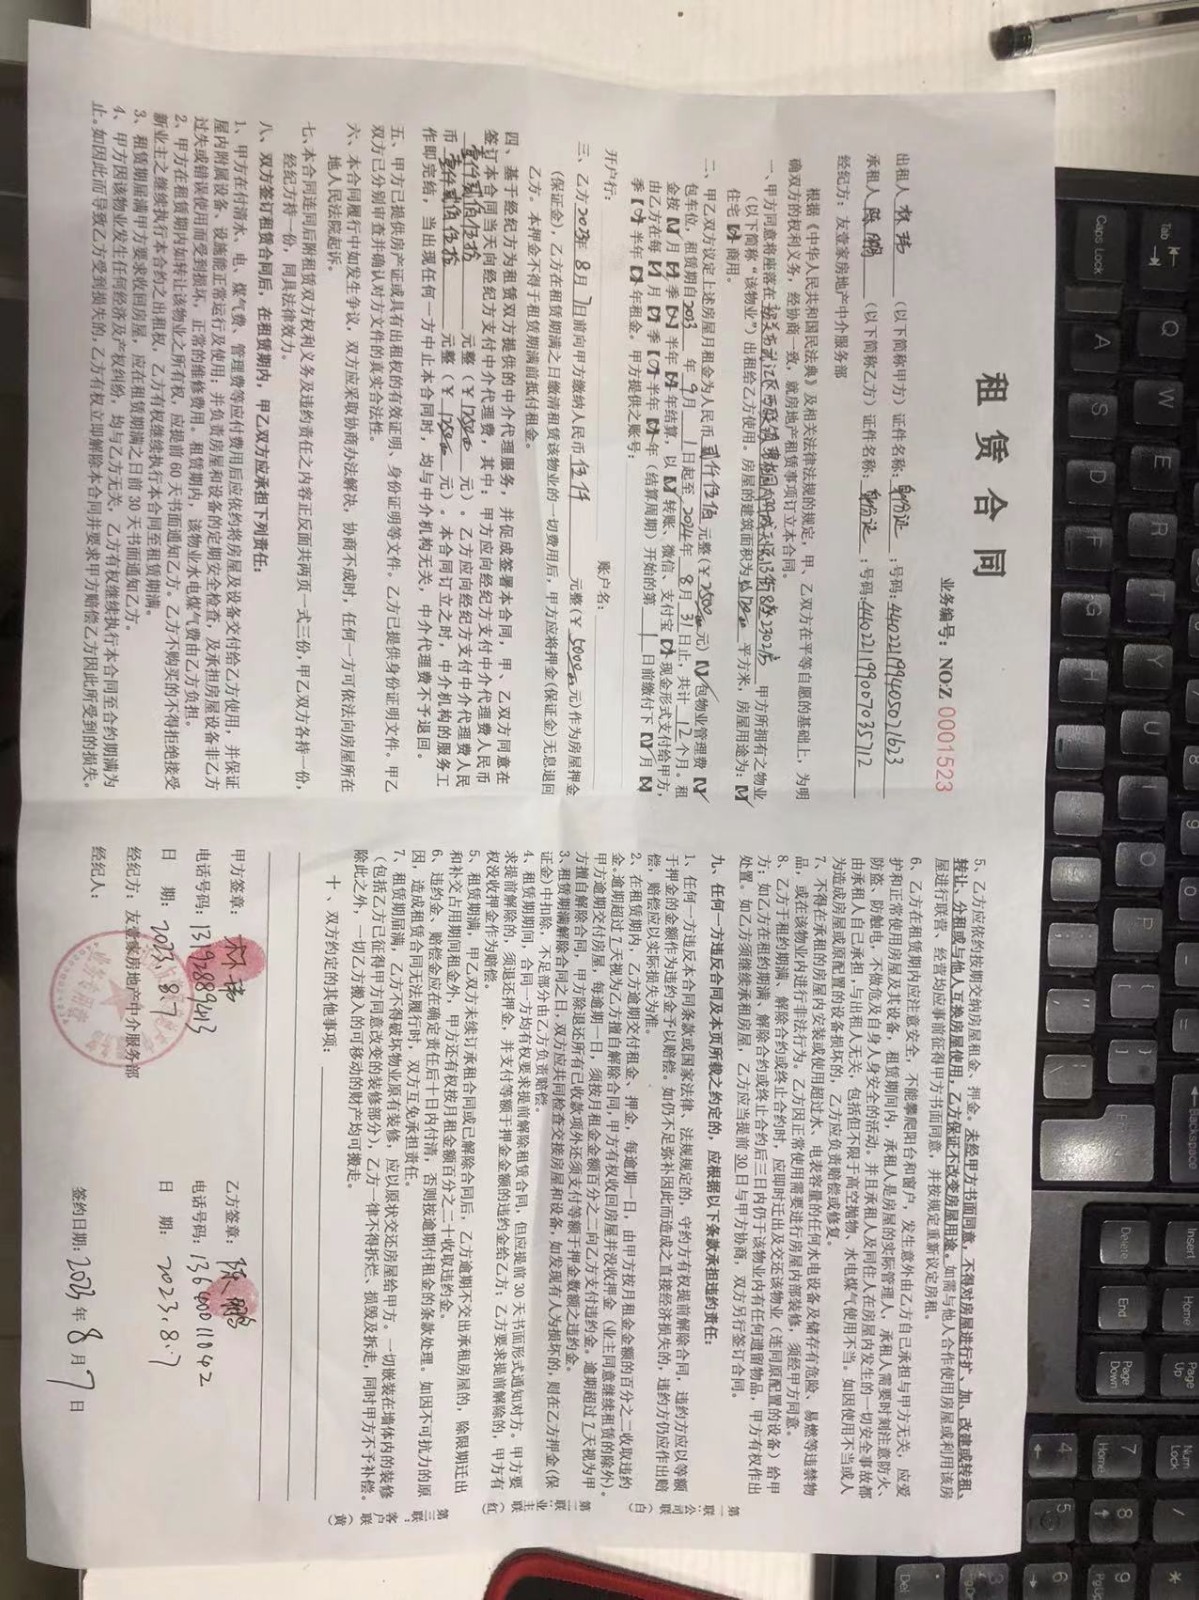 租 赁 合 同
业务编号：NO:Z 0001523
出租人 （以下简称甲方）证件名称：身份证；号码：440221199405071623
承租人 陈鹏（以下简称乙方）证件名称：身份证；号码：440221199007035712
经纪方：友壹家房地产中介服务部
根据《中华人民共和国民法典》及相关法律法规的规定，甲、乙双方在平等自愿的基础上，为明
确双方的权利义务，经协商一致，就房地产租赁事项订立本合同。
一、甲方同意将座落在 13街8座2302房 甲方所拥有之物业
（以下简称“该物业”）出租给乙方使用。房屋的建筑面积为 平方米，房屋用途为：【√】
住宅【×】商用。
二、甲乙双方议定上述房屋月租金为人民币 贰仟伍佰 元整（￥2500 元）【√】包物业管理费【√】
包车位，租赁期自2023年9月1日起至2024年8月31日止，共计12个月。租
金按【√】月【×】季【×】半年【×】年结算，以【√】转账、微信、支付宝【×】现金形式支付给甲方，
由乙方在每【√】月【×】季【×】半年【×】年（结算周期）开始的第 1 日前缴付下【√】月【×】
季【×】半年【×】年租金。甲方提供之账号：
开户行： 账户名：
三、乙方2023年8月7日前向甲方缴纳人民币 伍仟 元整（￥5000 元）作为房屋押金
（保证金），乙方在租赁期满之日缴清租赁该物业的一切费用后，甲方应将押金（保证金）无息退回
乙方。本押金不得于租赁期满前抵付租金。
四、基于经纪方为租赁双方提供的中介代理服务，并促成签署本合同，甲、乙双方同意在
签订本合同当天向经纪方支付中介代理费，其中：甲方应向经纪方支付中介代理费人民币
壹仟贰佰伍拾 元整（￥1250 元）。乙方应向经纪方支付中介代理费人民
币 壹仟贰佰伍拾 元整（￥1250 元）。本合同订立之时，中介机构的服务工
作即完结，当出现任何一方中止本合同时，均与中介机构无关，中介代理费不予退回。
五、甲方已提供房产证或具有出租权的有效证明、身份证明等文件。乙方已提供身份证明文件。甲乙
双方已分别审查并确认对方文件的真实合法性。
六、本合同履行中如发生争议，双方应采取协商办法解决，协商不成时，任何一方可依法向房屋所在
地人民法院起诉。
七、本合同连同后附租赁双方权利义务及违约责任之内容正反面共两页一式三份，甲乙双方各持一份，
经纪方持一份，同具法律效力。
八、双方签订租赁合同后，在租赁期内，甲乙双方应承担下列责任：
1、甲方在付清水、电、煤气费、管理费等应付费用后应依约将房屋及设备交付给乙方使用，并保证
屋内附属设备、设施能正常运行及使用；并负责房屋和设备的定期安全检查，及承担房屋设备非乙方
过失或错误使用而受到损坏，正常的维修费用。租赁期内，该物业水电煤气费由乙方负担。
2、甲方在租赁期内如转让该物业之所有权，应提前 60 天书面通知乙方。乙方不购买的不得拒绝接受
新业主之继续执行本合约之出租权，乙方有权继续执行本合同至租赁期满。
3、租赁期届满甲方要求收回房屋，应在租赁期满之日前 30 天书面通知乙方。
4、甲方因该物业发生任何经济及产权纠纷，均与乙方无关，乙方有权继续执行本合同至合约期满为
止。如因此而导致乙方受到损失的，乙方有权立即解除本合同并要求甲方赔偿乙方因此所受到的损失。
5、乙方应依约按期交纳房屋租金、押金。未经甲方书面同意，不得对房屋进行扩、加、改建或转租、
转让、分租或与他人互换房屋使用，乙方保证不改变房屋用途。如需与他人合作使用房屋或利用该房
屋进行联营、经营均应事前征得甲方书面同意，并按规定重新议定房租。
6、乙方在租赁期内应注意安全，不能攀爬阳台和窗户，发生意外由乙方自己承担与甲方无关，应爱
护和正常使用房屋及其设备，租赁期间内，承租人是房屋的实际管理人，承租人需要时刻注意防火、
防盗、防触电，不做危及自身人身安全的活动。并且承租人及同住人在房屋内发生的一切安全事故都
由承租人自己承担，与出租人无关，包括但不限于高空抛物、水电煤气使用不当。如因使用不当或人
为造成房屋或原配置的设备损坏的，乙方应负责赔偿或修复。
7、不得在承租的房屋内安装或使用超过水、电表容量的任何水电设备及储存有危险、易燃等违禁物
品，或在该物业内进行非法行为。乙方因正常使用需要进行房屋内部装修，须经甲方同意。
8、乙方于租约期满、解除合约或终止合约时，应即时迁出及交还该物业（连同原配置的设备）给甲
方；如乙方在租约期满、解除合约或终止合约后三日内仍于该物业内有任何遗留物品，甲方有权作出
处置。如乙方须继续承租房屋，乙方应当提前 30 日与甲方协商，双方另行签订合同。
九、任何一方违反合同及本页所载之约定的，应根据以下条款承担违约责任：
1、任何一方违反本合同条款或国家法律、法规规定的，守约方有权提前解除合同，违约方应以等额
于押金的金额作为违约金予以赔偿。如仍不足弥补因此而造成之直接经济损失的，违约方仍应作出赔
偿，赔偿应以实际损失为准。
2、在租赁期内，乙方逾期交付租金、押金，每逾期一日，由甲方按月租金金额的百分之二收取违约
金。逾期超过 7 天视为乙方擅自解除合同，甲方有权收回房屋并没收押金（业主同意继续租赁的除外）。
甲方逾期交付房屋，每逾期一日，须按月租金金额百分之二向乙方支付违约金。逾期超过 7 天视为甲
方擅自解除合同，甲方除退还所有已收款项外还须支付等额于押金数额之违约金。
3、租赁期满解除合同之日，双方应共同检查交接房屋和设备，如发现有人为损坏的，则在乙方押金（保
证金）中扣除，不足部分由乙方负责赔偿。
4、租赁期间，合同一方均有权要求提前解除租赁合同，但应提前 30 天书面形式通知对方。甲方要
求提前解除的，须退还押金，并支付等额于押金金额的违约金给乙方；乙方要求提前解除的，甲方有
权没收押金作为赔偿。
5、租赁期满，甲乙双方未续订承租合同或已解除合同后，乙方逾期不交出承租房屋的，除限期迁出
和补交占用期间租金外，甲方还有权按月租金额百分之二十收取违约金。
6、违约金、赔偿金应在确定责任后十日内付清，否则按逾期付租金的条款处理。如因不可抗力的原
因，造成租赁合同无法履行时，双方互免承担责任。
7、租赁期届满，乙方不得破坏物业原有装修，应以原状交还房屋给甲方。一切嵌装在墙体内的装修
（包括乙方已征得甲方同意改变的装修部分），乙方一律不得拆烂、损毁及拆走，同时甲方不予补偿。
除此之外，一切乙方搬入的可移动的财产均可搬走。
十、双方约定的其他事项：
第一联：公司联（白） 第二联：业主联（红） 第三联：客户联（黄）
甲方签章： 乙方签章：陈鹏
电话号码：13192889243 电话号码：13640011042
日 期：2023.8.7 日 期：2023.8.7
经纪方：友壹家房地产中介服务部
经纪人： 签约日期：2023年8月7日